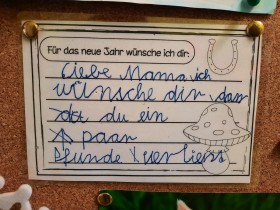 Für das neue Jahr wünsche ich dir:
Liebe Mama ich
wünsche dir dass
du ein
paar
Pfunde verlierst